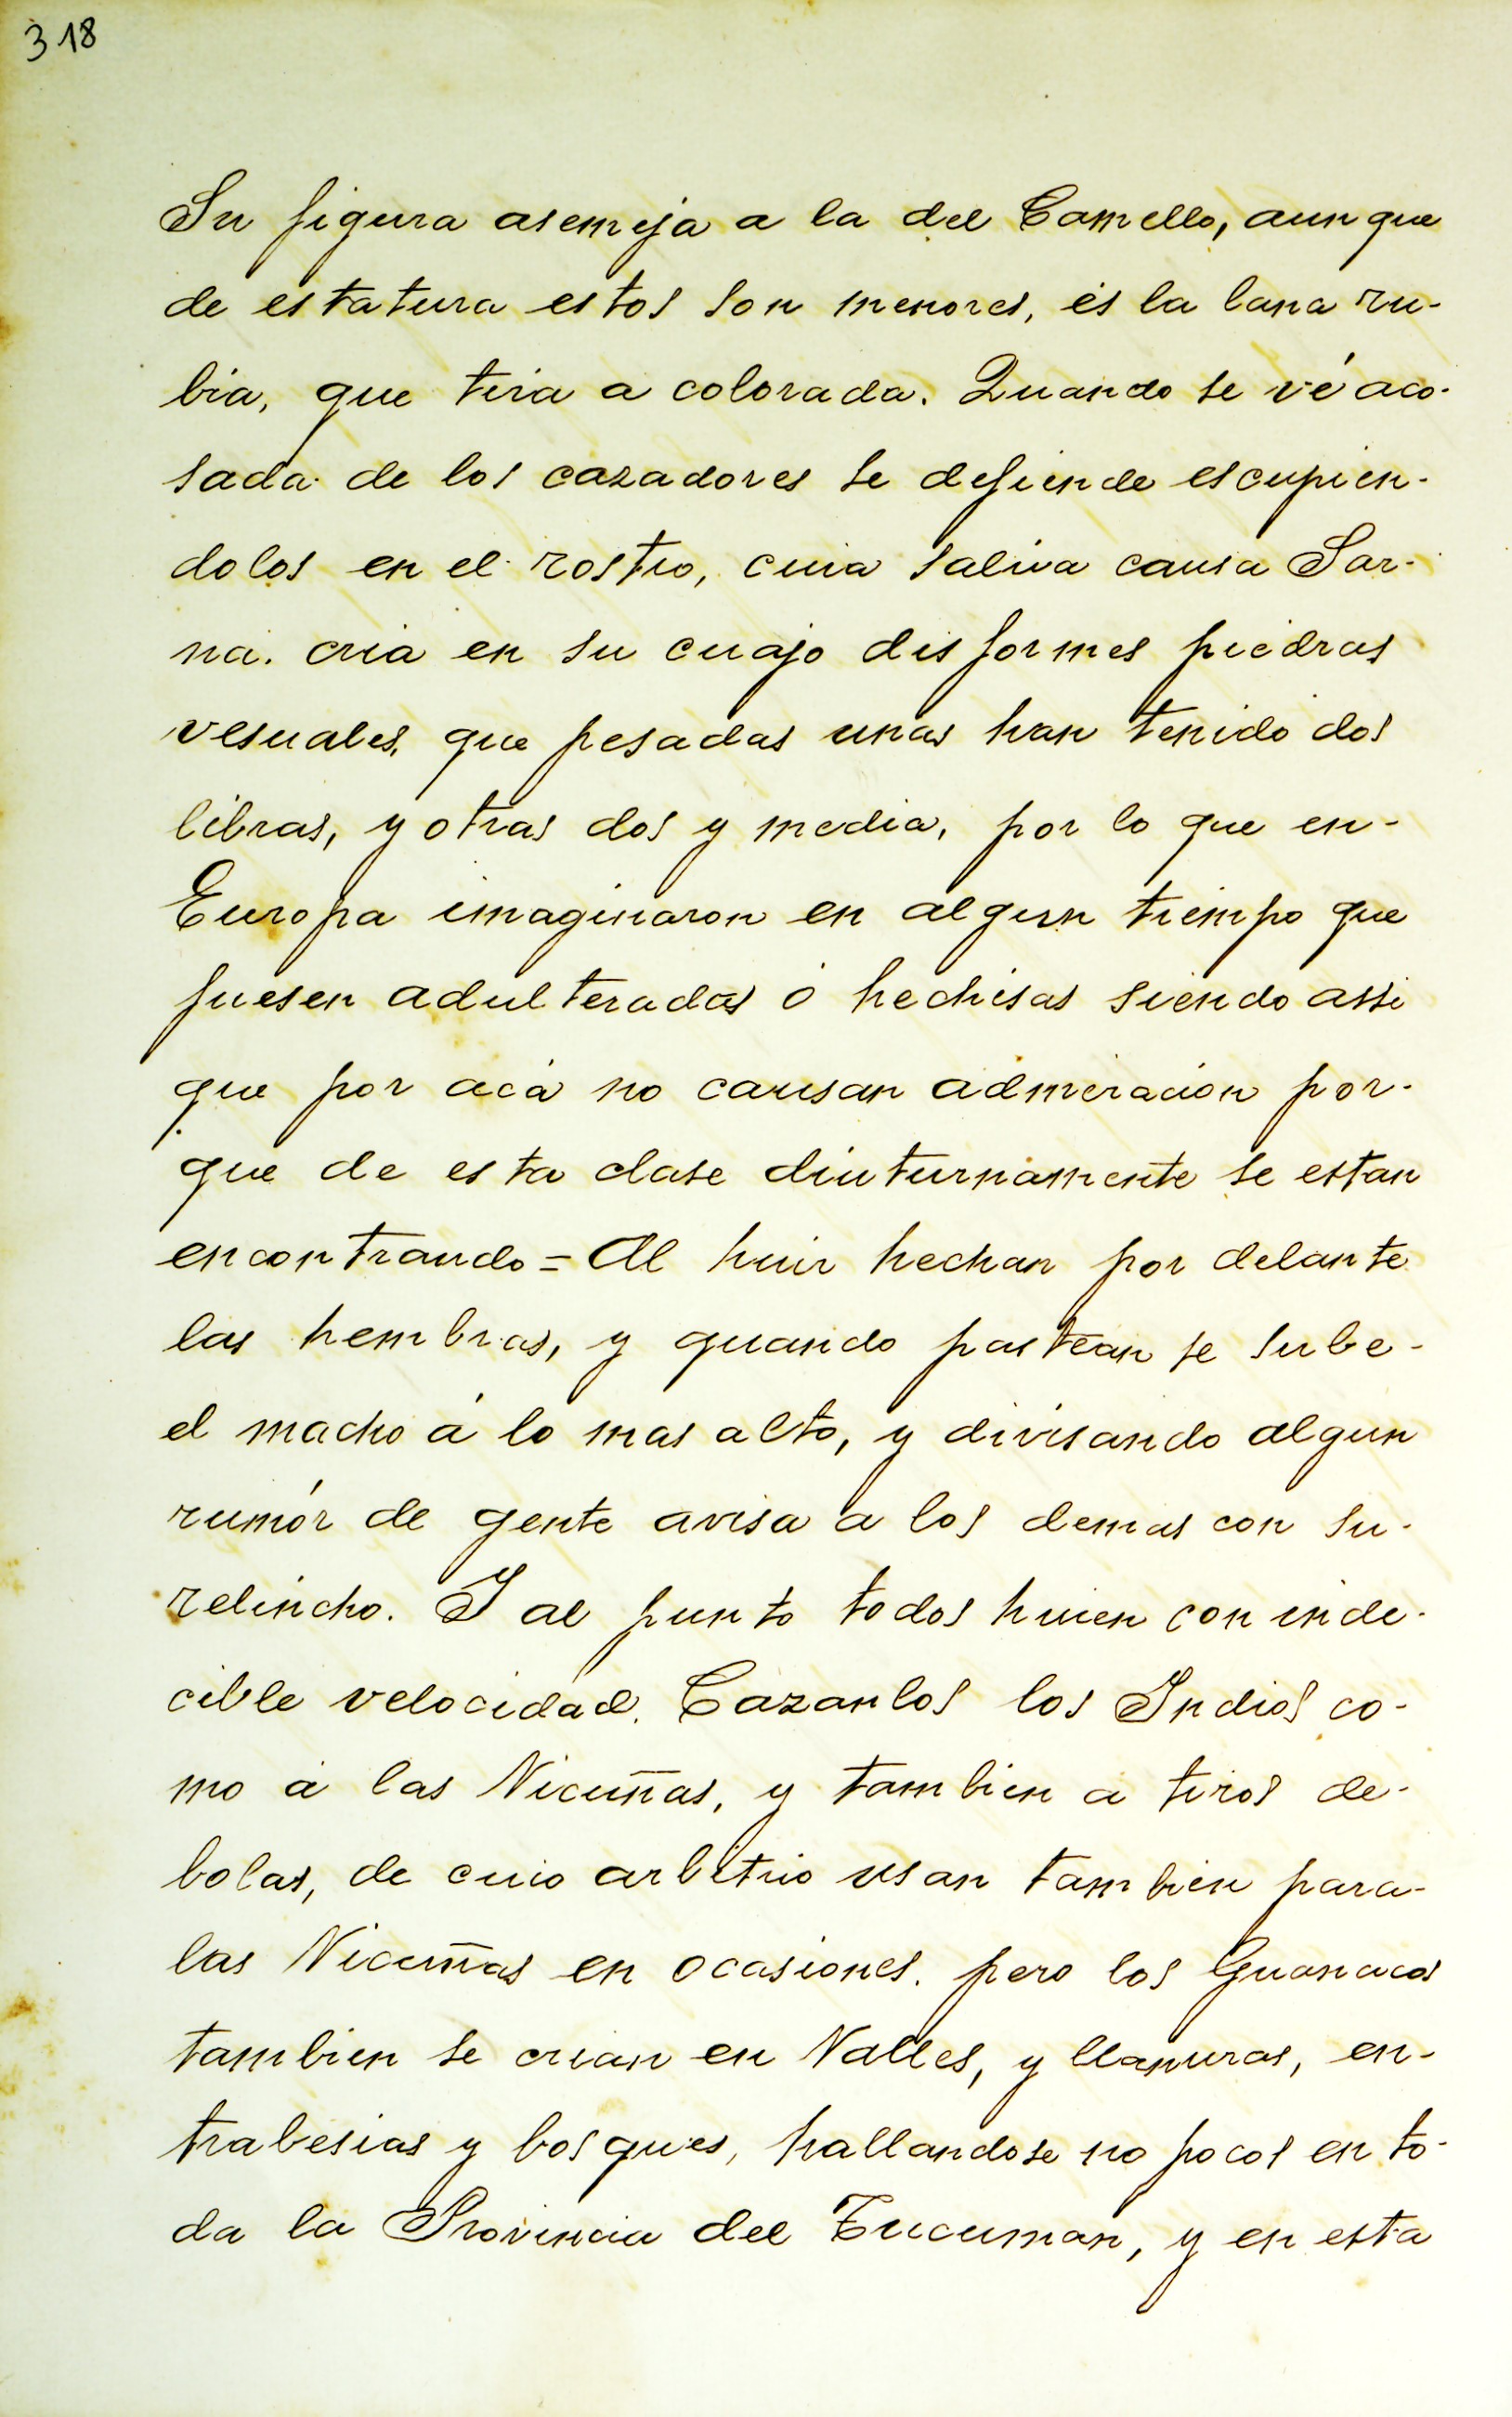 318
Su figura asemeja a la del Camello, aunque
de estatura estos son menores, és la lana ru-
bia, que tira a colorada. Quando se vé aco-
sada de los cazadores se defiende escupien-
dolos en el rostro, cuia saliva causa Sar-
na. cria en su cuajo disformes piedras
vesuales, que pesadas unas han tenido dos
libras, y otras dos y media, por lo que en-
Europa imaginaron en algun tiempo que
fuesen adulteradas ó hechisas siendo assi
que por acá no causan admiracion por-
que de esta clase diuturnamente se estan
encontrando = Al huir hechan por delante
las hembras, y quando pastean se sube-
el macho á lo mas alto, y divisando algun
rumór de gente avisa a los demas con su-
relincho. Y al punto todos huien con inde-
cible velocidad. Cazanlos los Indios co-
mo á las Vicuñas, y tambien a tiros de-
bolas, de cuio arbitrio usan tambien para-
las Vicuñas en ocasiones. pero los Guanacos
tambien se crian en Valles, y llanuras, en-
trabesias y bosques, hallandose no pocos en to-
da la Provincia del Tucuman, y en esta